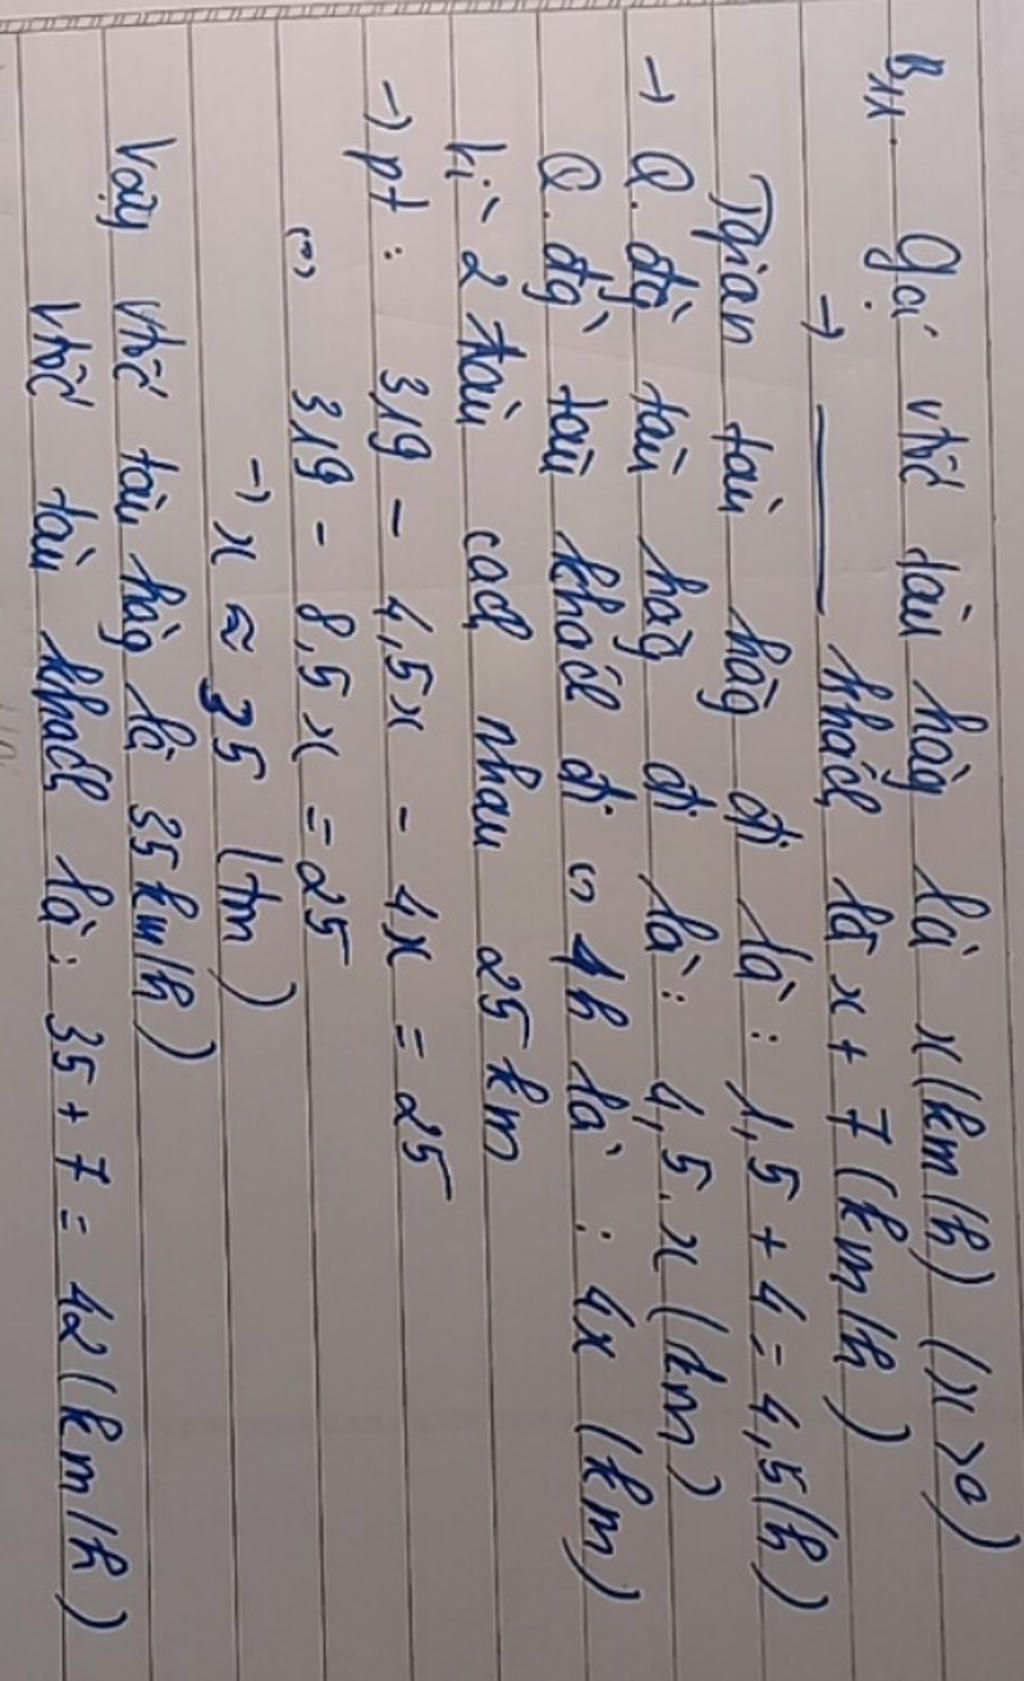 B11. Gọi vtốc tàu hàg là x (km/h) (x>0)
→ ——— khách là x + 7 (km/h)
Tgian tàu hàg đi là : 1,5 + 4 = 4,5 (h)
→ Q. đg` tàu hàg đi là : 4,5. x (km)
Q. đg` tàu khách đi 4h là : 4x (km)
Vì 2 tàu cách nhau 25 km
→ pt : 319 - 4,5x - 4x = 25
319 - 8,5x = 25
→ x ≈ 35 (tm)
Vậy vtốc tàu hàg là 35 km/h)
vtốc tàu khách là : 35 + 7 = 42 (km/h)